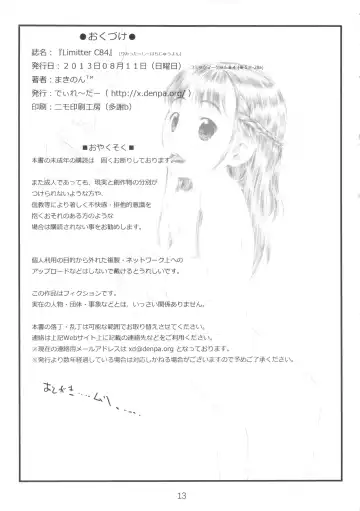 ●おくづけ●
誌名：『Limitter C84』
発行日：２０１３年０８月１１日（日曜日）
著者：まきのん™
発行：でぃれ～だー（ http://x.denpa.org/ ）
印刷：ニモ印刷工房（多謝b）
■おやくそく■
本書の未成年の購読は　固くお断りしております
また成人であっても、現実と創作物の分別が
つけられないような方や、
信教等により著しく不快感・排他的意識を
抱くおそれのある方のような
場合は購読されない事をお勧めします。
個人利用の目的から外れた複製・ネットワーク上への
アップロードなどはしないで戴けるとうれしいです。
この作品はフィクションです。
実在の人物・団体・事象などとは、いっさい関係ありません。
本書の落丁・乱丁は可能な範囲でお取り替えさせてください。
連絡は上記Webサイト上に記載の連絡先などをご利用ください。
※現在の連絡用メールアドレスは xd@denpa.org となっております。
※発行より数年経過している場合は対応しかねる場合がございますので予めご了承ください。
13